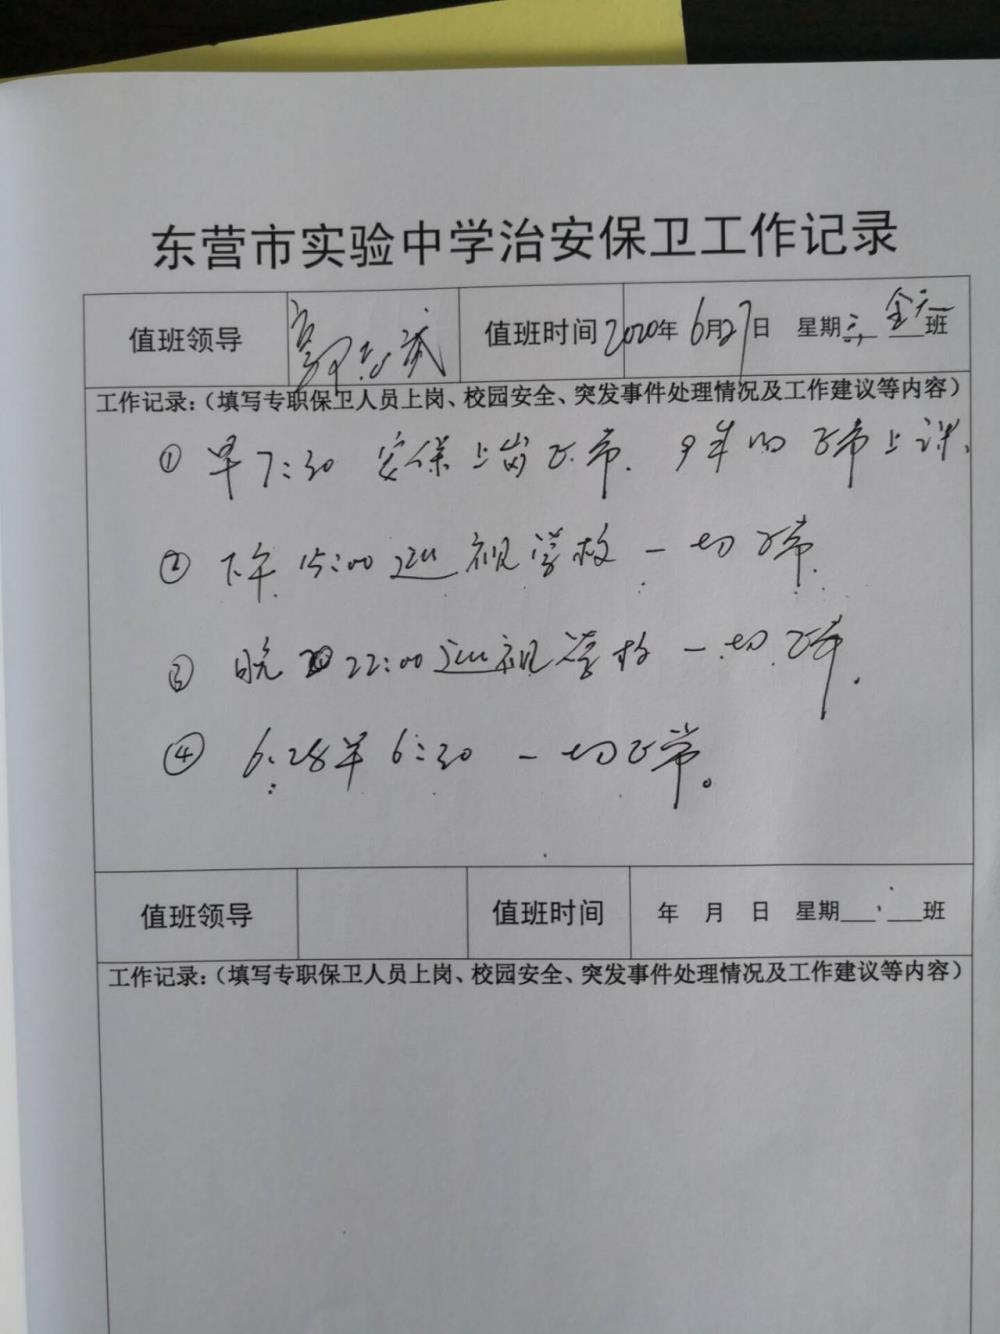 东营市实验中学治安保卫工作记录
值班领导 郭志武 值班时间 2020年 6月27日 星期 金天班
工作记录：（填写专职保卫人员上岗、校园安全、突发事件处理情况及工作建议等内容）
① 早7:30 安保上岗正常. 9年级正常上课.
② 下午 15:00 巡视学校 一切正常.
③ 晚 22:00巡视学校 一切正常.
④ 6.28早 6:30 一切正常。
值班领导 值班时间 年 月 日 星期___ ___班
工作记录：（填写专职保卫人员上岗、校园安全、突发事件处理情况及工作建议等内容）